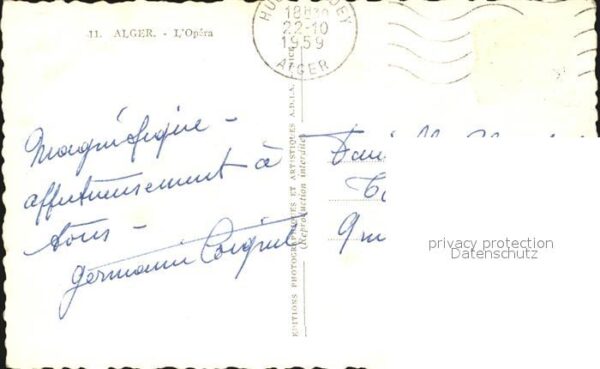 11. ALGER. - L'Opéra
18H30
22-10
1959
ALGER
Magnifique -
affectueusement à
tous -
Germaine
EDITIONS PHOTOGRAPHIQUES ET ARTISTIQUES A.D.I.A. NICE
(Reproduction interdite)
privacy protection
Datenschutz